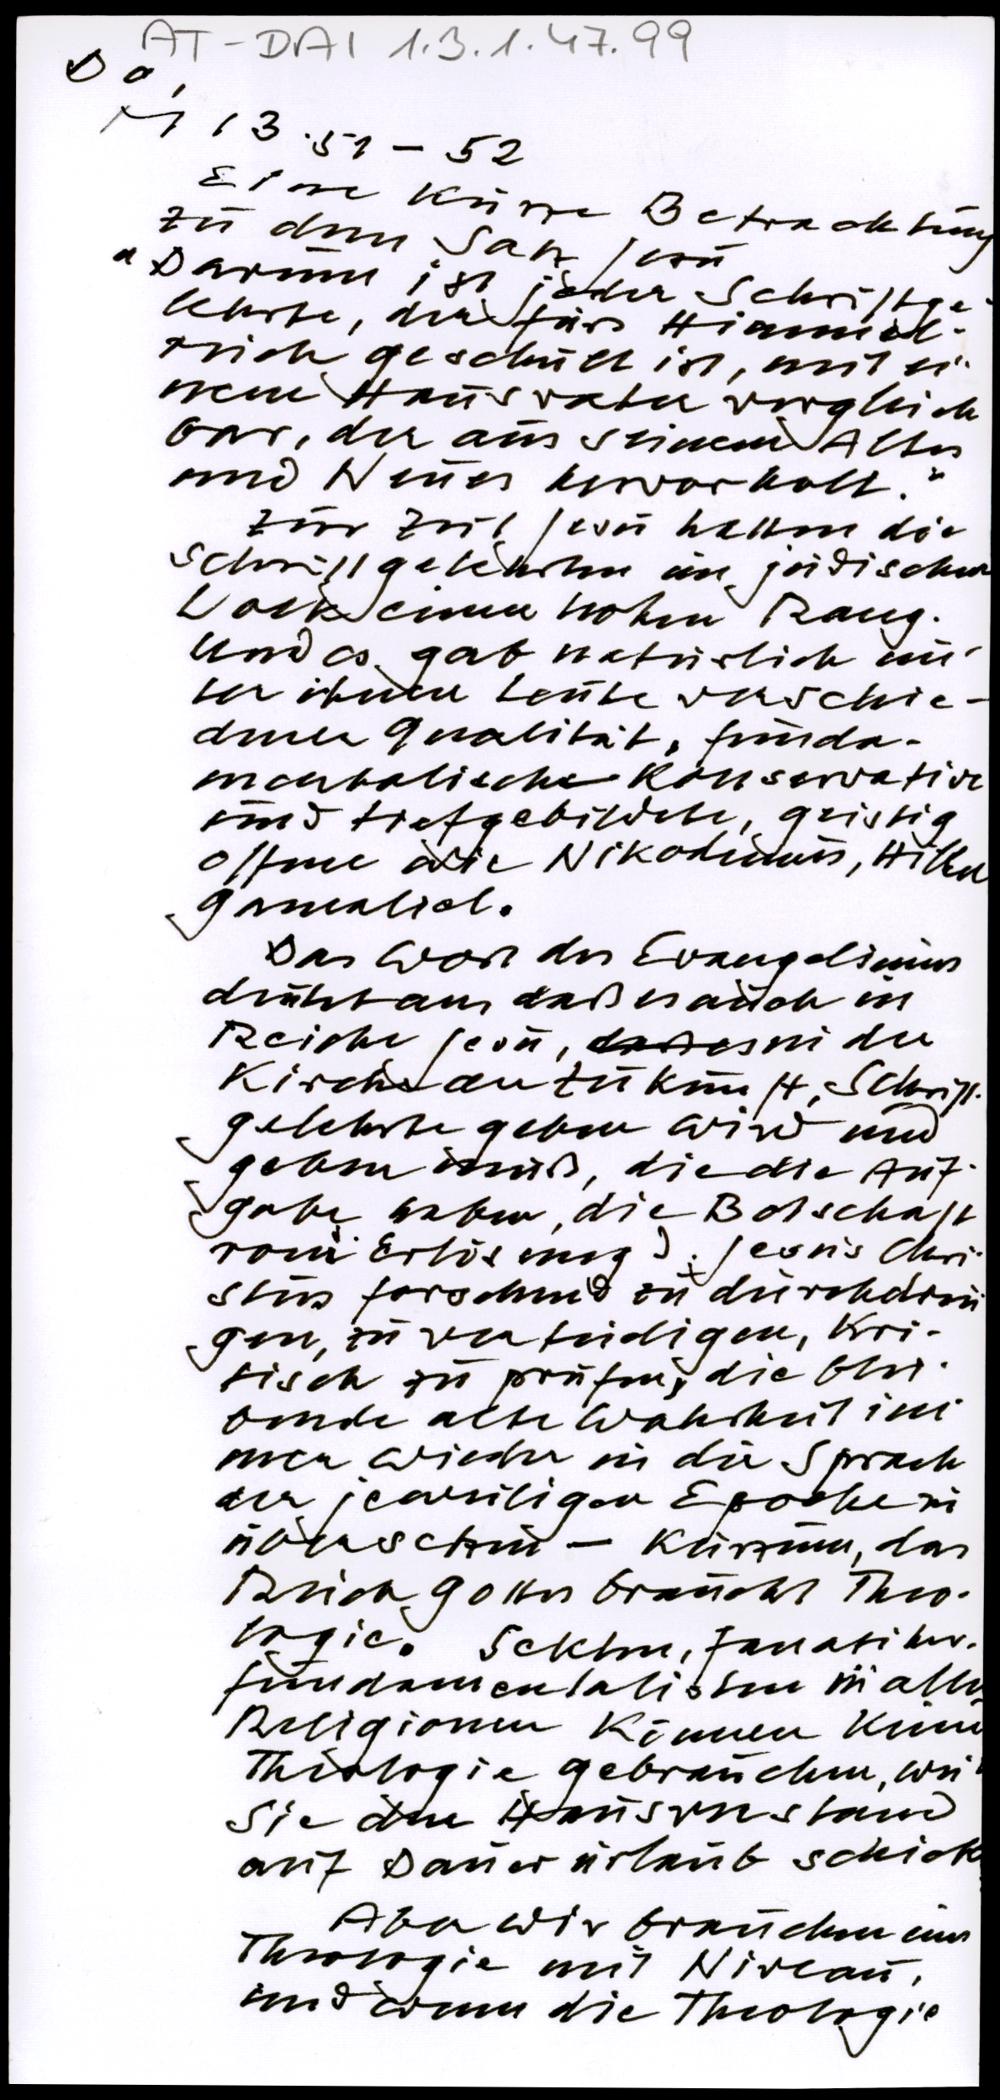 AT-DAI 1.3.1.47.99
Do,
M 13.51-52
Eine kurze Betrachtung
zu dem Satz Jesu
"Darum ist jeder Schriftge-
lehrte, der fürs Himmel-
reich geschult ist, mit ei-
nem Hausvater vergleich
bar, der aus seinem Altes
und Neues hervorholt."
Zur Zeit Jesu hatten die
Schriftgelehrten im jüdischen
Volk einen hohen Rang.
Und es gab natürlich un-
ter ihnen Leute verschie-
dener Qualität, funda-
mentalische Konservative
und tiefgebildete, geistig
offene wie Nikodemus, Hillel
Gamaliel.
Das Wort des Evangeliums
drückt aus daß es auch im
Reiche Jesu, in der
Kirche der Zukunft, Schrift-
gelehrte geben wird und
geben muß, die die Auf-
gabe haben, die Botschaft
vom Erlöser Jesus Chri-
stus forschend zu durchdrin
gen, zu verteidigen, kri-
tisch zu prüfen, die blei-
bende alte Wahrheit im
mer wieder in die Sprache
der jeweiligen Epoche zu
übersetzen - kurzum, das
Reich Gottes braucht Theo-
logie. Sekten, Fanatiker,
Fundamentalisten in allen
Religionen können keine
Theologie gebrauchen, weil
sie den Hausverstand
auf Dauerurlaub schicken
Aber wir brauchen eine
Theologie mit Niveau,
und wenn die Theologie